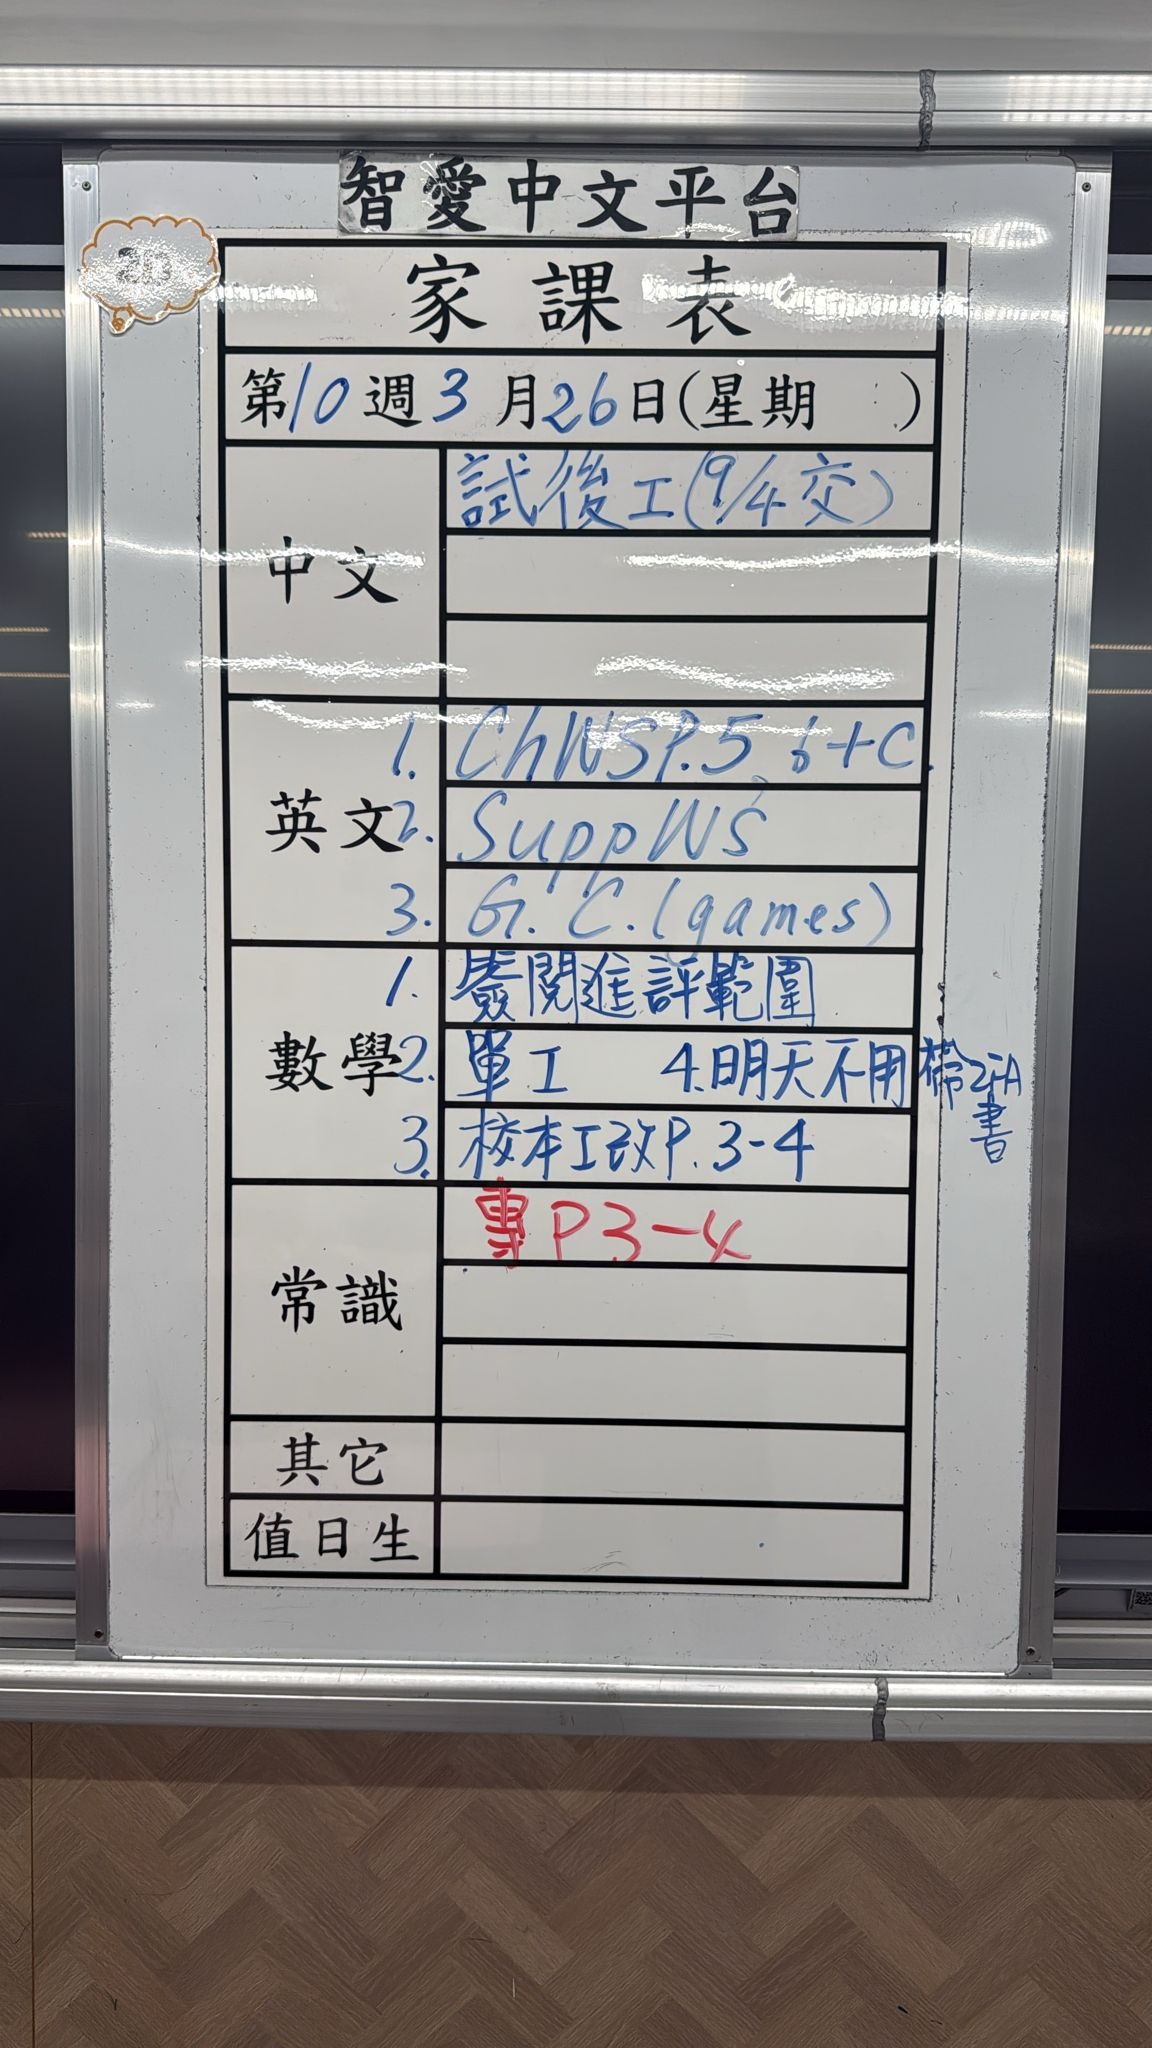 智愛中文平台
家課表
第10週3月26日(星期 )
中文
試後工(9/4交)
英文
1. ChWSP.5、6+C.
2. SuppWS
3. G.C.(games)
數學
1. 簽閱進評範圍
2. 單工 4.明天不用帶2下A書
3. 校本工改P.3-4
常識
專P3-4
其它
值日生